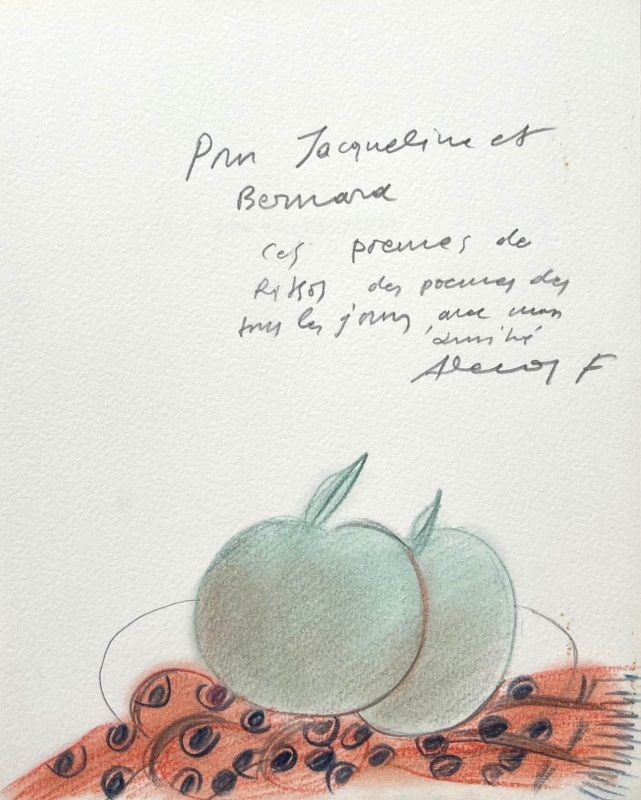 Pour Jacqueline et
Bernard
ces poemes de
Ritsos des poemes des
tous les jours, avec mon
amitié
Alecos F